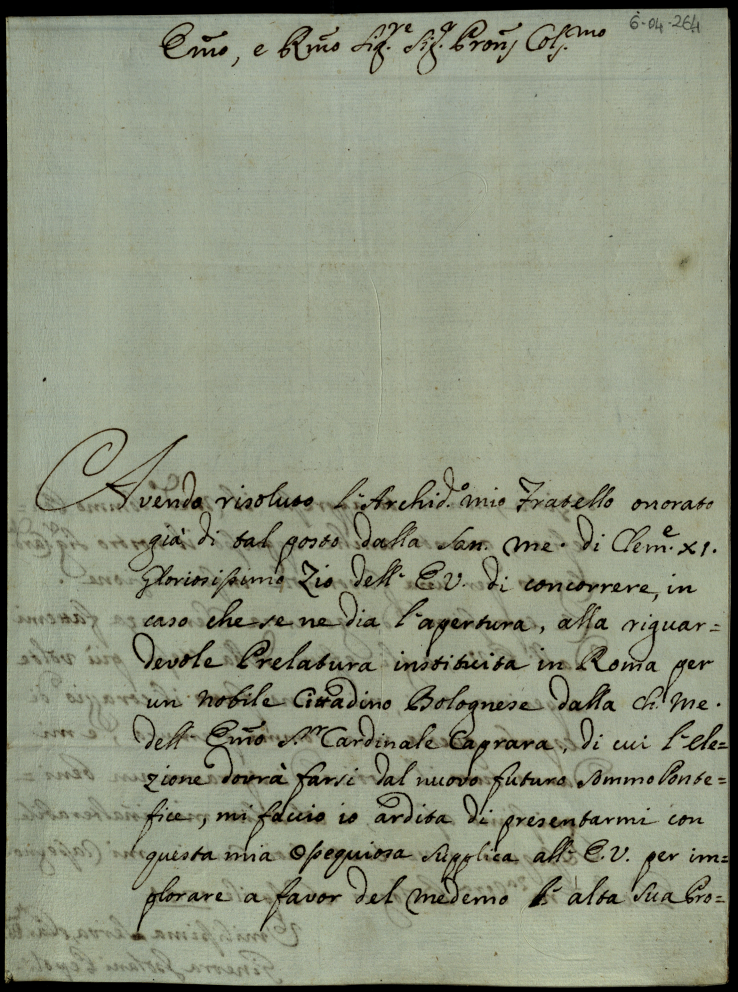 6-04-264
Em̃o, e Rm̃o Sig.re Sig.r Proñ Col.mo
Avendo risoluto l'Archid.o mio Fratello onorato
già di tal posto dalla San. me. di Clem.e XI.
Gloriosissimo Zio dell' E.V. di concorrere, in
caso che se ne dia l'apertura, alla riguar=
devole Prelatura instituita in Roma per
un nobile Cittadino Bolognese dalla ch: me.
dell' Em̃o S.r Cardinale Caprara, di cui l'ele=
zione dovrà farsi dal nuovo futuro Sommo Ponte=
fice, mi faccio io ardita di presentarmi con
questa mia ossequiosa supplica all' E.V. per im=
plorare a favor del medemo l' alta sua Pro=